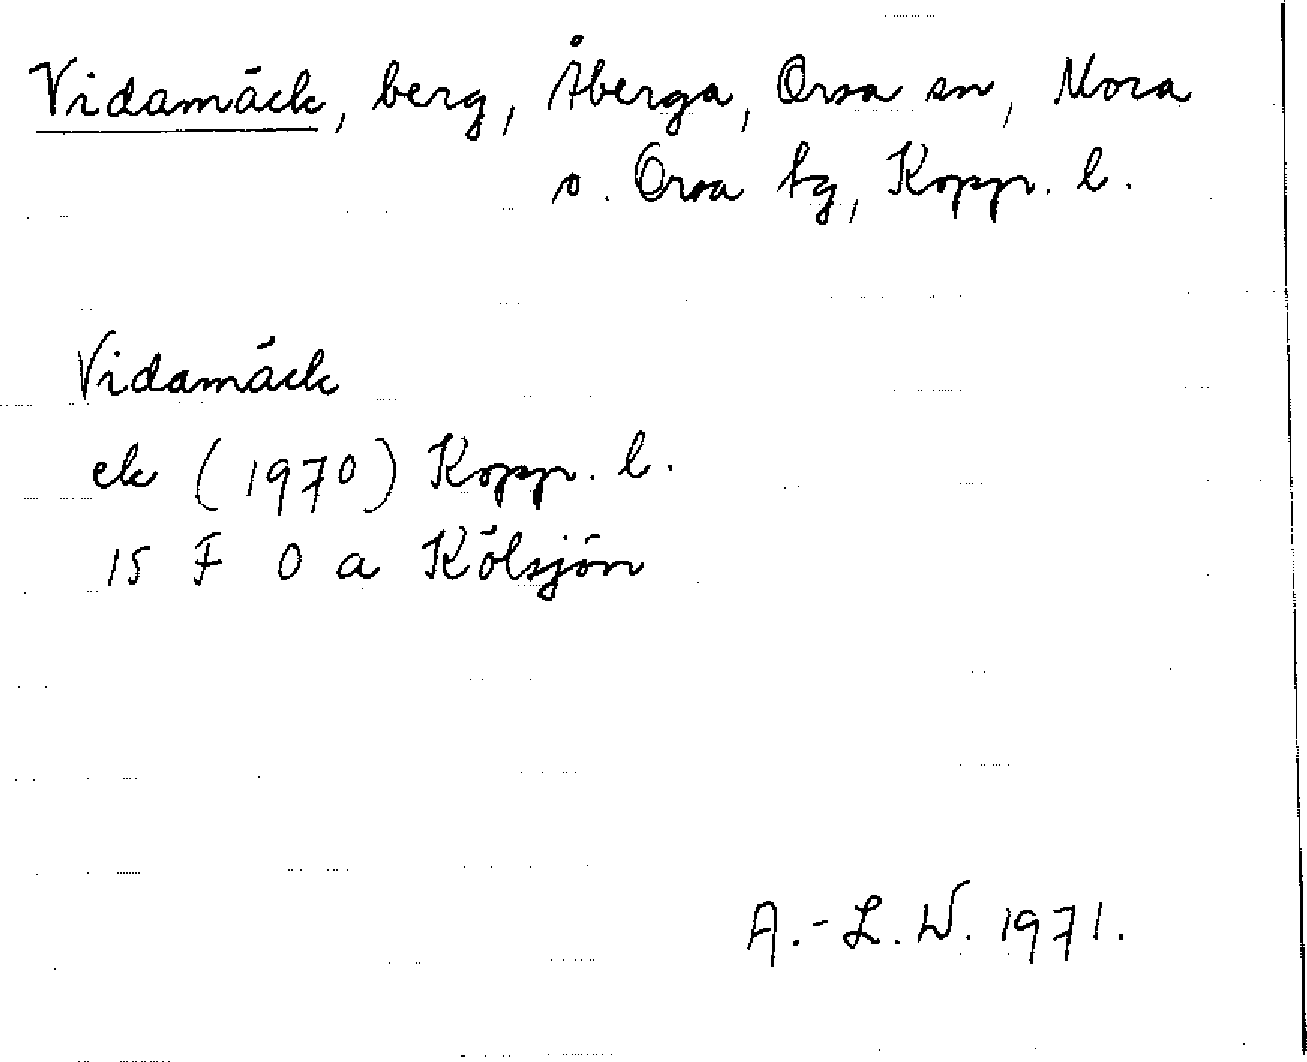 Vidamäck, berg, Åberga, Orsa sn, Mora
o. Orsa tg, Kopp. l.
Vidamäck
ek (1970) Kopp. l.
15 F 0 a Kölsjön
A.-L. W. 1971.